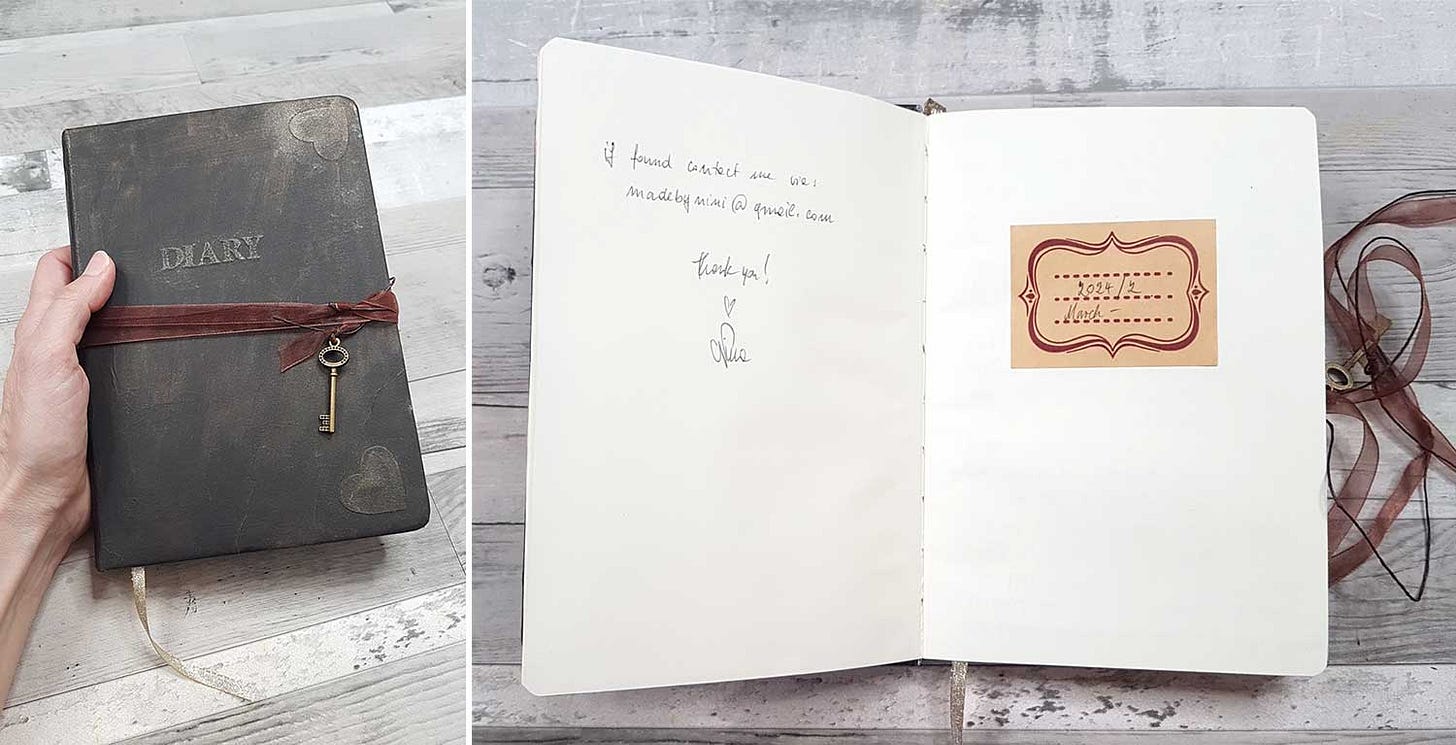 DIARY
if found contact me via:
madebynini@gmail.com
Thank you!
Nina
2024/2
March -